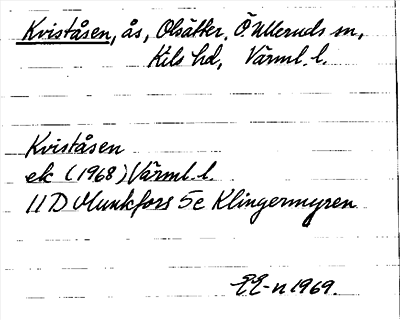 Kviståsen, ås, Olsätter, Ö. Ulleruds sn,
Kils hd, Värml. l.
Kviståsen
ek (1968) Värml. l.
11D Munkfors 5e Klingermyren
EE-n 1969.